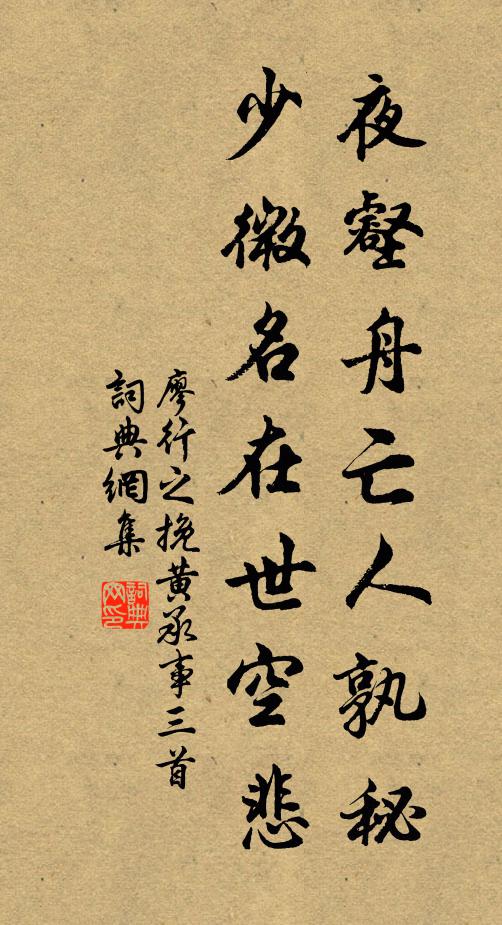 夜壑舟亡人孰秘
少微名在世空悲
廖行之挽黄承事三首
詞典網集
詞典網印